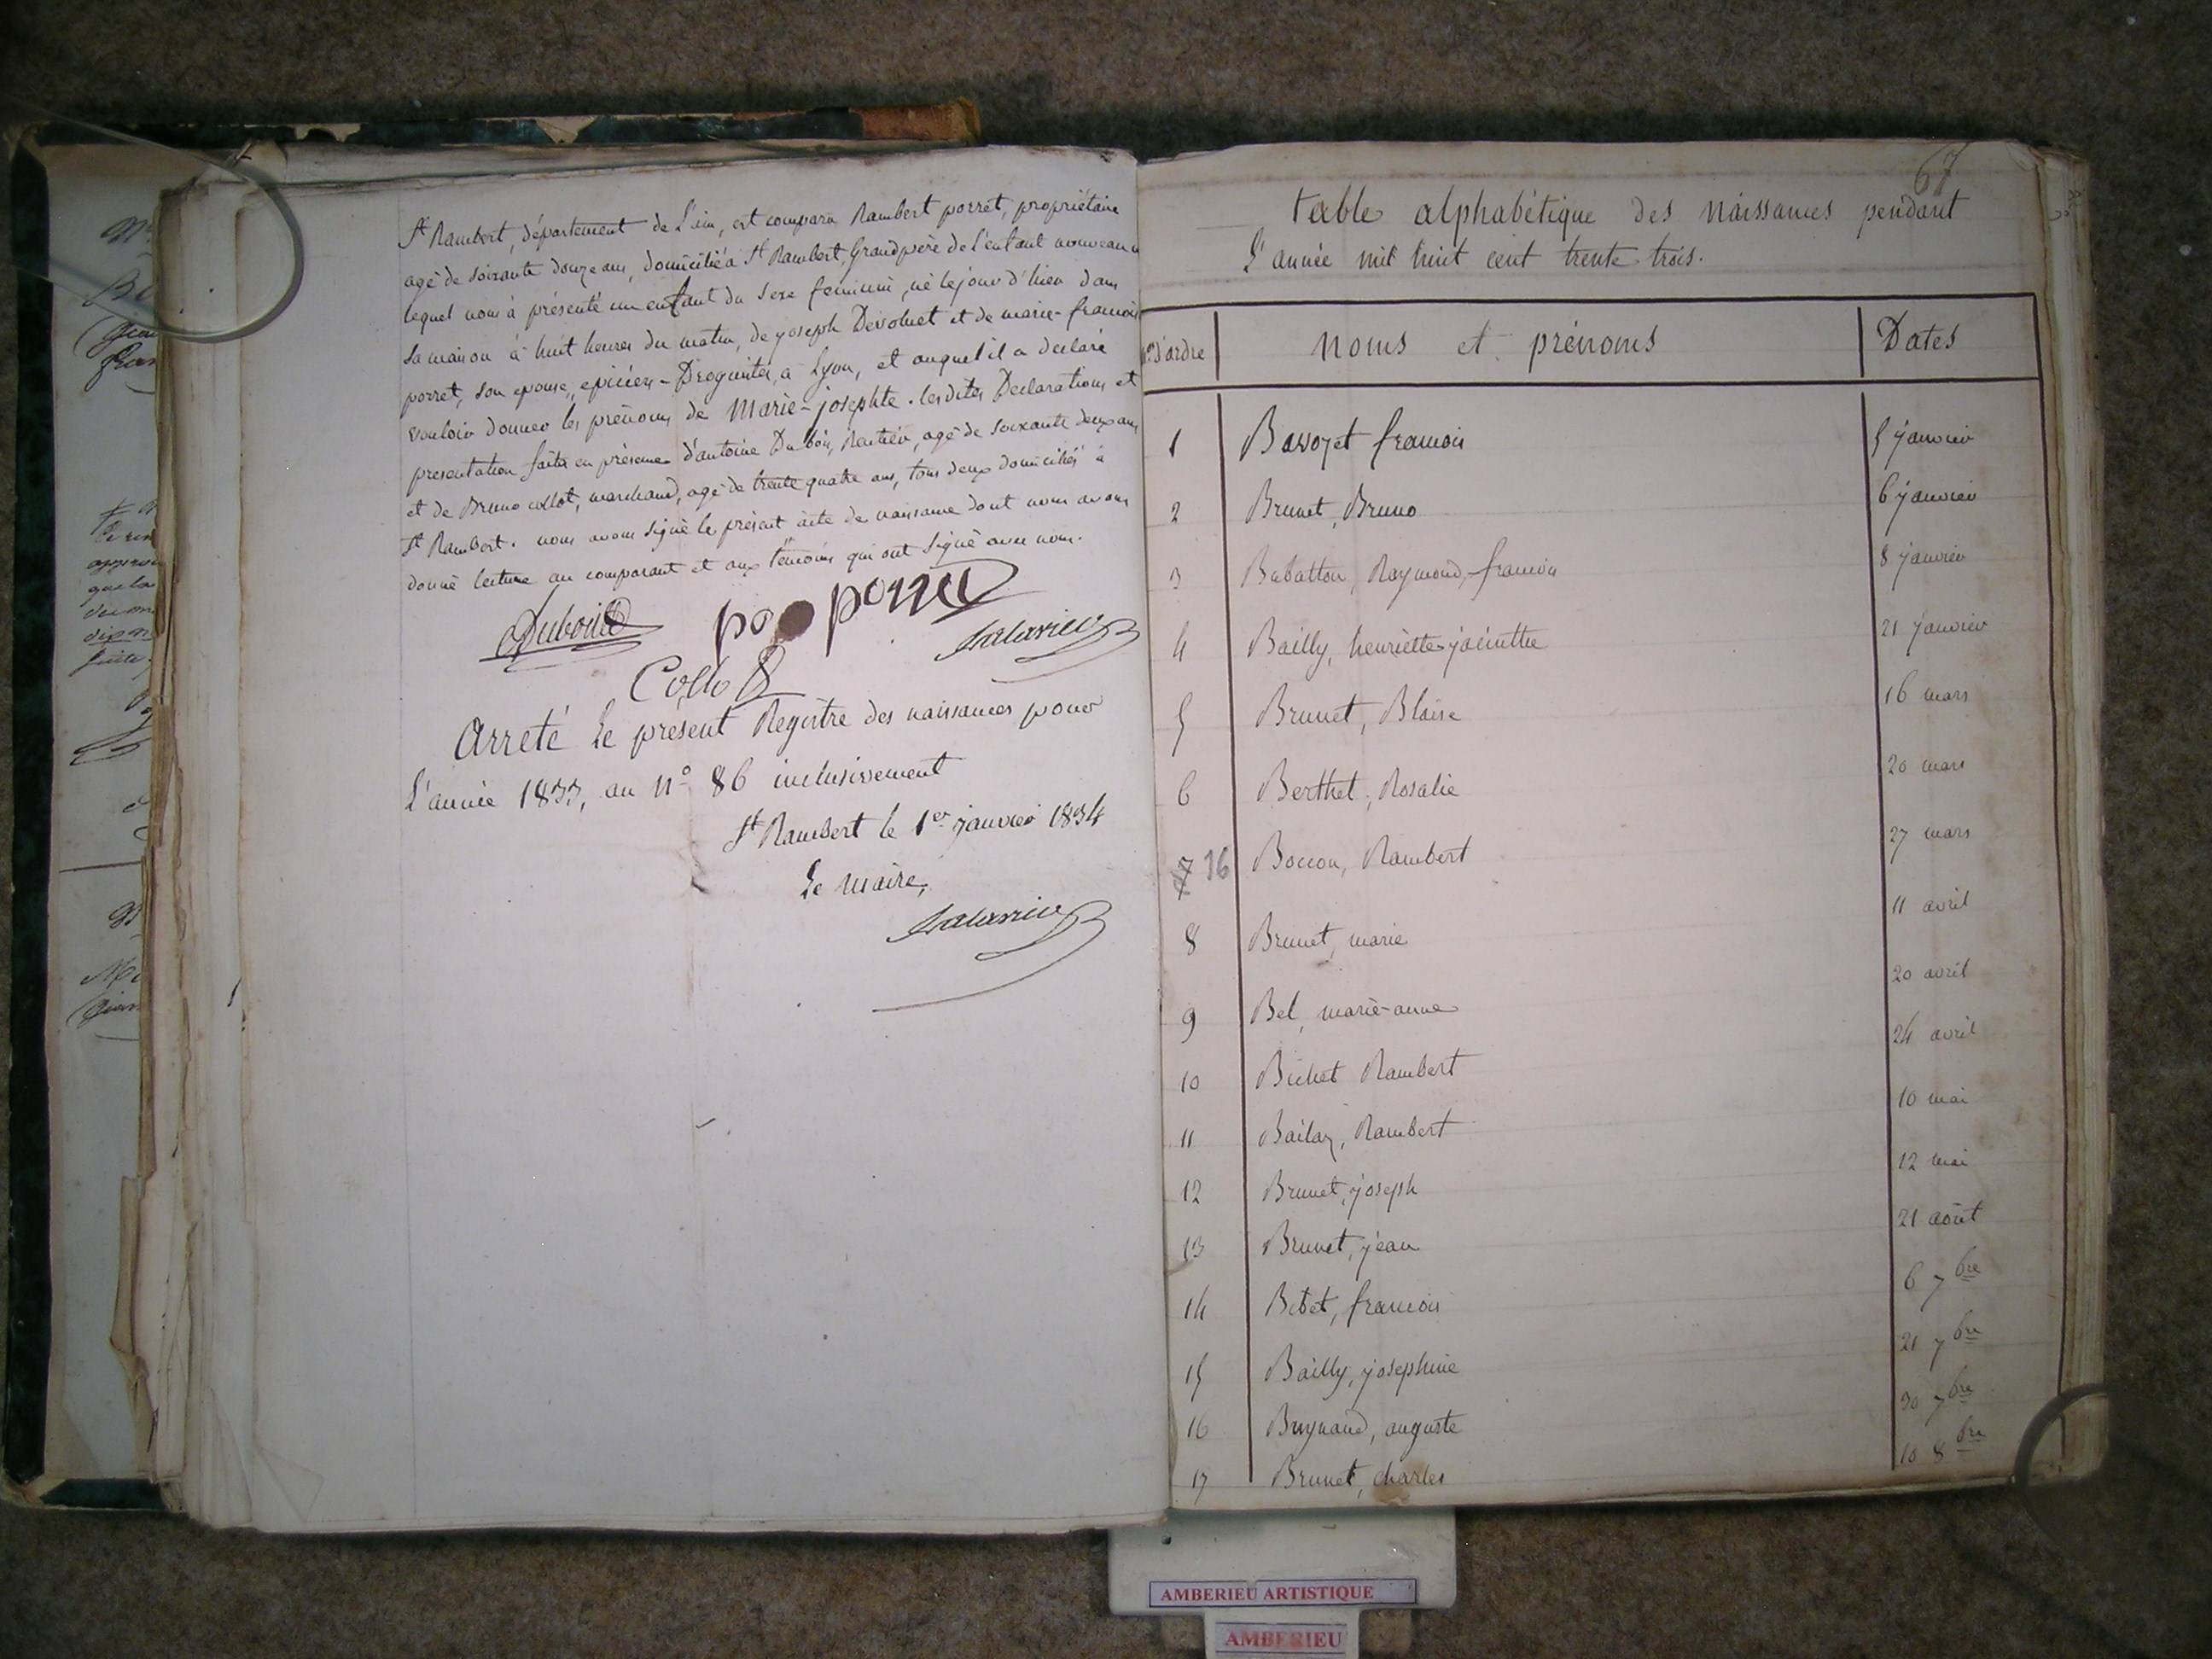 St Rambert, département de L'ain, est comparu Rambert porret, propriétaire
agé de soixante douze ans, domicilié à St Rambert, Grandpère de l'enfant nouveau n
lequel nous à présenté un enfant du sexe feminin, né le jour d'hier dans
sa maison à huit heures du matin, de joseph Devoluet et de marie-francoise
porret, son epouse, epiciers-Droguistes, a Lyon, et auquel il a declaré
vouloir donner les prénoms de Marie-josephte. lesdites Declarations et
presentation faites en présence d'antoine Dubois, Rentier, agé de soixante deux ans
et de Bruno collot, marchand, agé de trente quatre ans, tous deux domiciliés à
St Rambert. nous avons signé le présent acte de naissance dont nous avons
donné lecture au comparant et aux témoins qui ont signé avec nous.
Dubois po porret
Collot
Arreté Le present Registre des naissances pour
L'année 1833, au N° 86 inclusivement
St Rambert le 1er janvier 1834
Le Maire,
67
table alphabétique des naissances pendant
L'année mil huit cent trente trois.
nos d'ordre noms et prénoms Dates
1 Bavozet francois 5 janvier
2 Brunet, Bruno 6 janvier
3 Raymond, francois 8 janvier
4 Bailly, henriette jacinthe 21 janvier
5 Brunet, Blaise 16 mars
6 Berthet, Rosalie 20 mars
7 36 Boccon, Rambert 27 mars
8 Brunet, marie 11 avril
9 Bel, marie-anne 20 avril
10 Bichet Rambert 24 avril
11 Rambert 10 mai
12 Brunet, joseph 12 mai
13 Brunet, jean 21 août
14 Bibet, francois 6 7bre
15 Bailly, josephine 21 7bre
16 Bugnand, auguste 30 7bre
17 Brunet, charles 10 8bre
AMBERIEU ARTISTIQUE
AMBERIEU